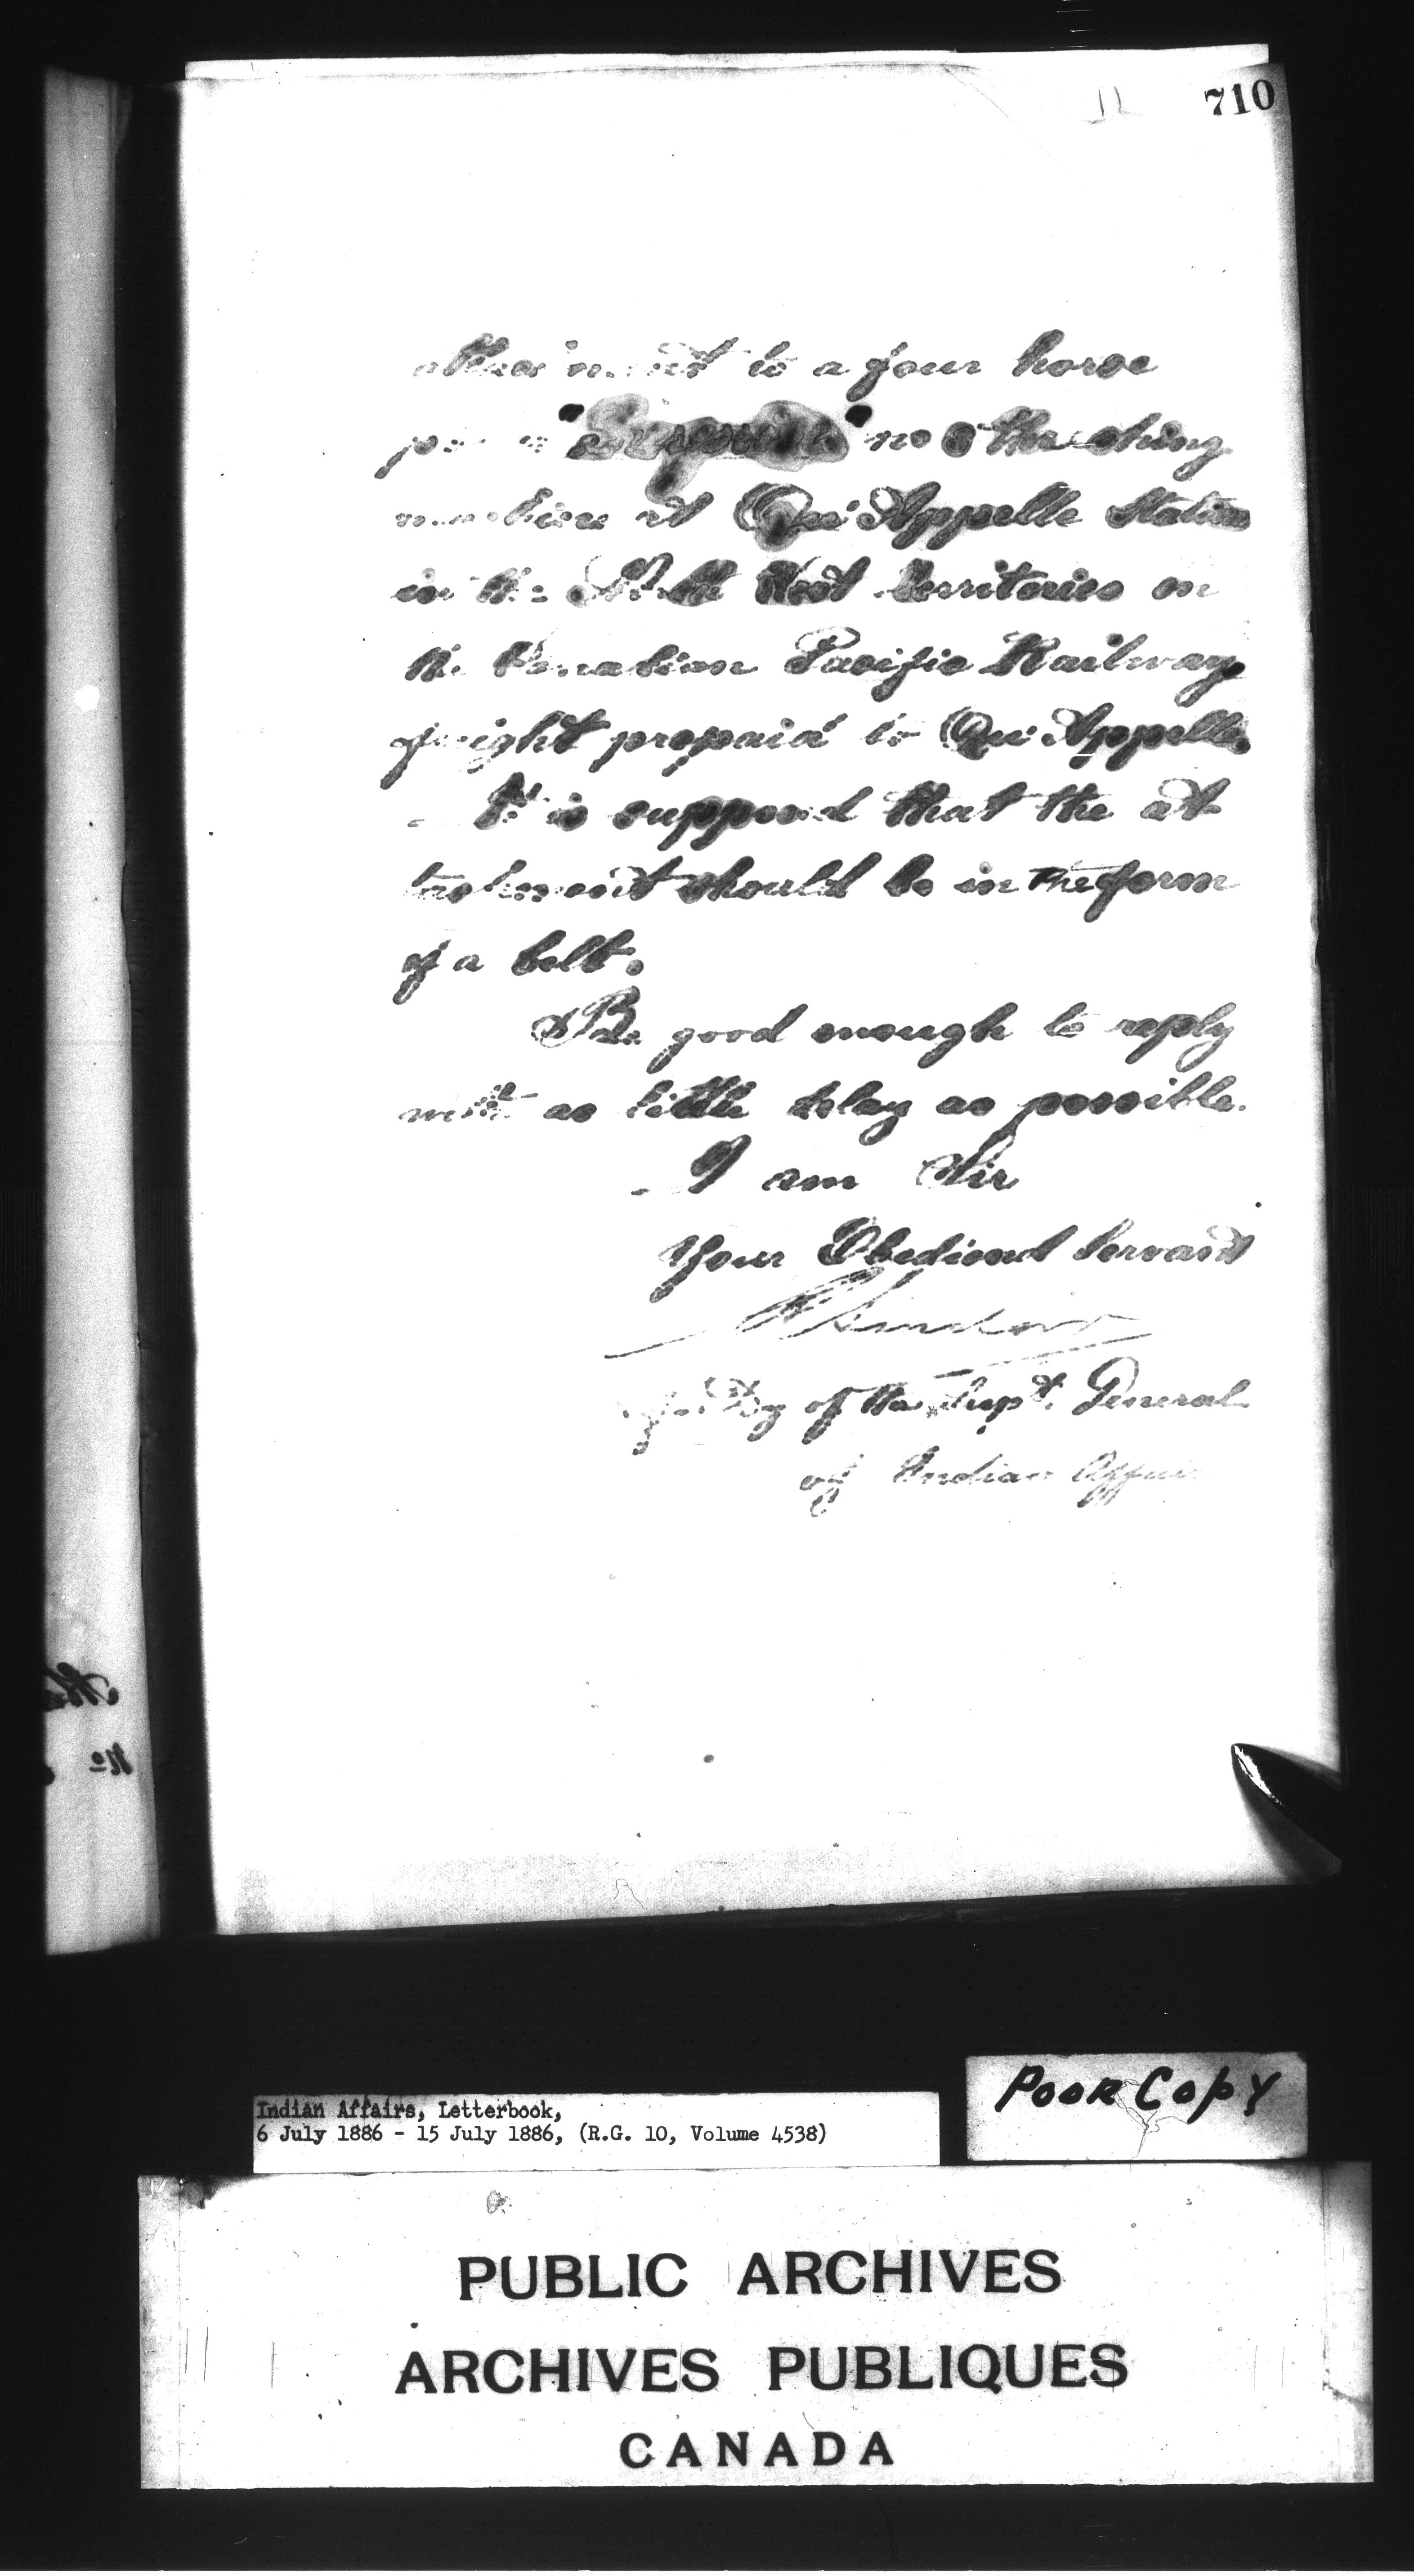 710
attachment to a four horse
power no 8 thrashing
machine at Qu'Appelle Station
in the North West Territories on
the Canadian Pacific Railway
freight prepaid to Qu'Appelle.
It is supposed that the at
tachment should be in the form
of a belt.
Be good enough to reply
with as little delay as possible.
I am Sir
Your Obedient Servant
R Sinclair
of the Supt. General
of Indian Affairs
POOR COPY
Indian Affairs, Letterbook,
6 July 1886 - 15 July 1886, (R.G. 10, Volume 4538)
PUBLIC ARCHIVES
ARCHIVES PUBLIQUES
CANADA